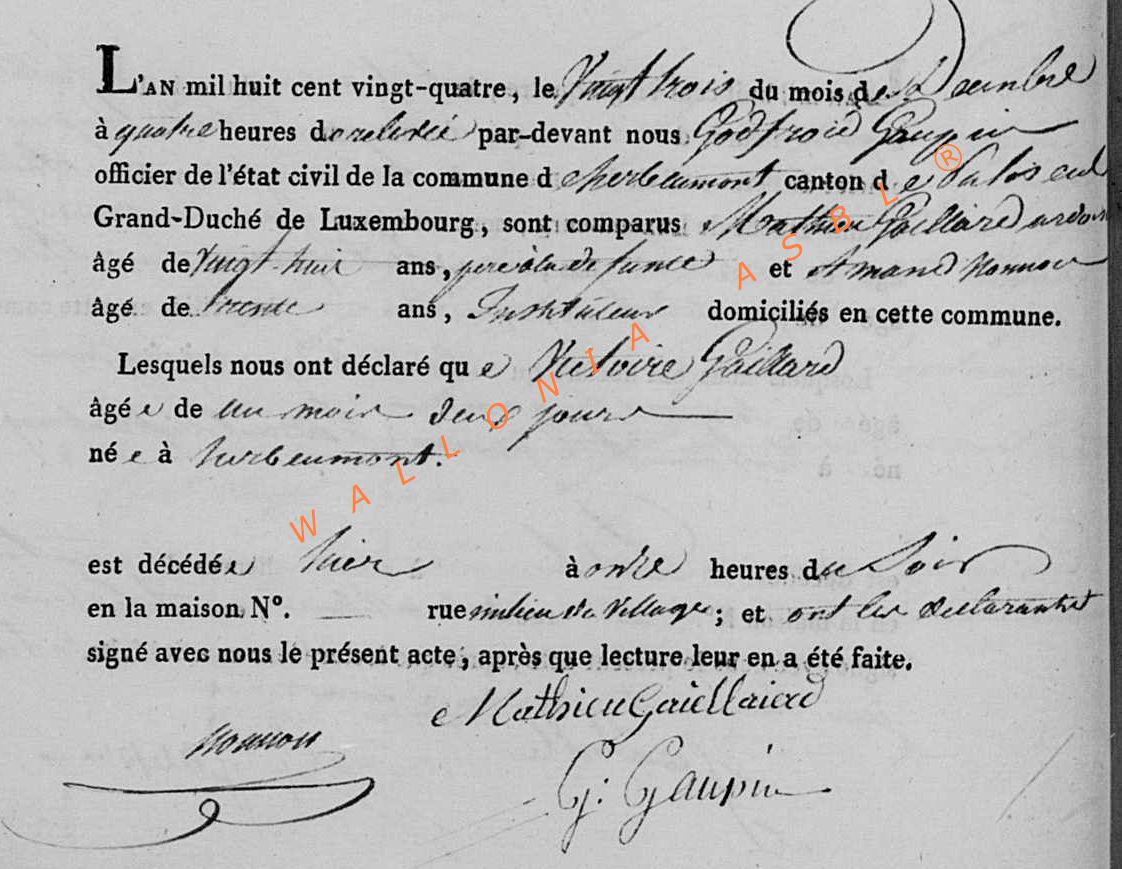 L'AN mil huit cent vingt-quatre, le Vingt trois du mois de Decembre
à quatre heures de relevée par-devant nous Godfroid Gaupin
officier de l'état civil de la commune d herbeumont canton de Paliseul
Grand-Duché de Luxembourg, sont comparus Mathieu Gaillard
âgé de Vingt-huit ans, pere à la defunte et Amand Nonnon
âgé de trente ans, Instituteur domiciliés en cette commune.
Lesquels nous ont déclaré que Victoire Gaillard
âgée de un mois deux jours
née à herbeumont.
est décédée hier à onze heures du Soir
en la maison N°. — rue milieu du Village; et ont les declarants
signé avec nous le présent acte, après que lecture leur en a été faite.
Mathieu Gaiellaierd
Nonnon
G. Gaupin
WALLONIA ASBL ®